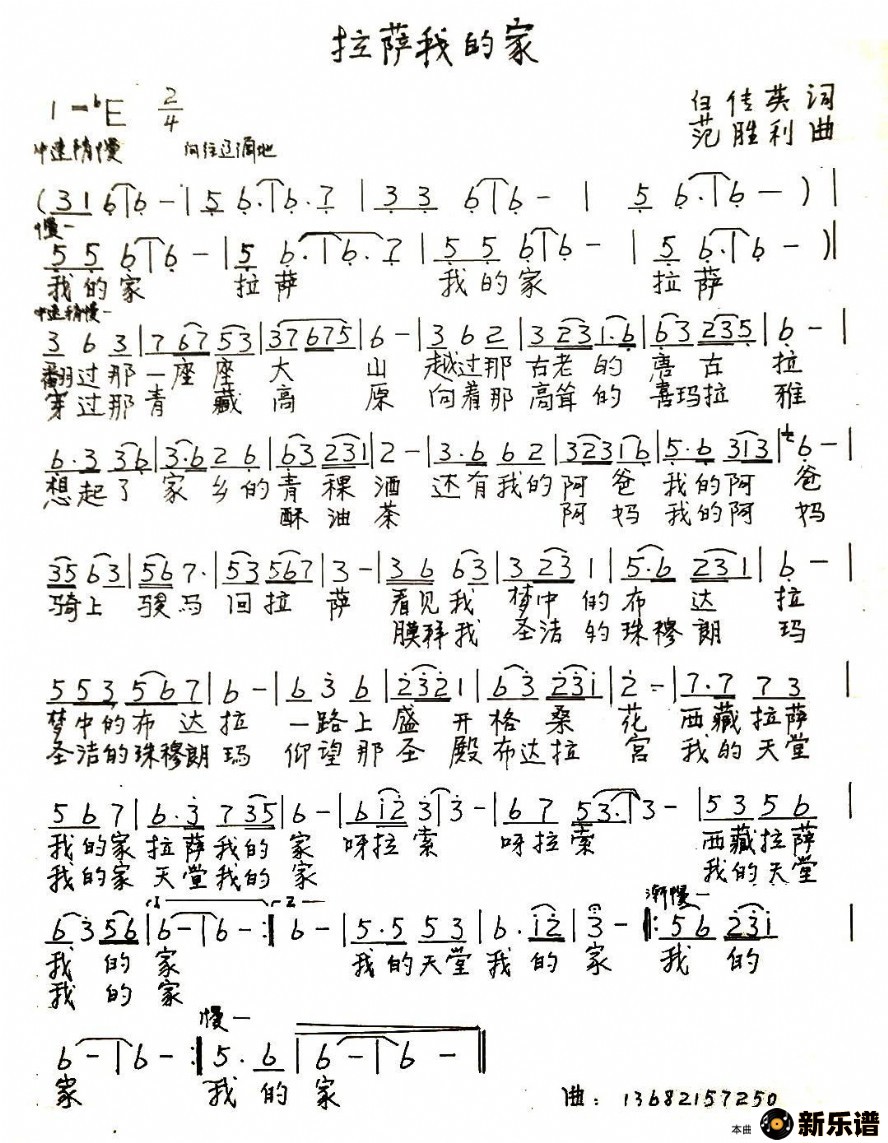 拉萨我的家
1=♭E 2/4
白佳英词
范胜利曲
中速稍慢 向往辽阔地
(3 1 6 6 - | 5 6. 6. 7 | 3 3 6 6 - | 5 6. 6 - ) |
慢一
5 5 6 6 - | 5 6. 6. 7 | 5 5 6 6 - | 5 6. 6 - ) |
我的家 拉萨 我的家 拉萨
中速稍慢一
3 6 3 | 7 67 53 | 37675 | 6 - | 3 6 2 | 3 231. 6 | 63 2335 | 6 - |
翻过那一座座大山 越过那古老的唐古拉
穿过那青藏高原 向着那高耸的喜玛拉雅
6. 3 36 | 3. 6 2 6 | 63 231 | 2 - | 3. 6 6 2 | 3231 6 | 5. 6 313 | 6 - |
想起了家乡的青稞酒 还有我的阿爸 我的阿爸
酥油茶 阿妈 我的阿妈
35 63 | 56 7. | 53 567 | 3 - | 36 63 | 3 23 1 | 5. 6 231 | 6 - |
骑上骏马回拉萨 看见我梦中的布达拉
膜拜我圣洁的珠穆朗玛
5 5 3 567 | 6 - | 6 3 6 | 2321 | 63 231 | 2 - | 7. 7 7 3 |
梦中的布达拉 一路上盛开格桑花 西藏拉萨
圣洁的珠穆朗玛 仰望那圣殿布达拉宫 我的天堂
5 6 7 | 6. 3 7 35 | 6 - | 612 3 | 3 - | 6 7 53. | 3 - | 5 3 5 6 |
我的家拉萨我的家 呀拉索 呀拉索 西藏拉萨
我的家天堂我的家 我的天堂
1 2 渐慢一
63 56 | 6 - | 6 - :| 6 - | 5. 5 5 3 | 6. 12 | 3 - |: 56 231 |
我的家 我的天堂我的家 我的
我的家
慢一
6 - | 6 - :| 5. 6 | 6 - | 6 - ||
家 我的家
曲：13682157250
本曲 新乐谱